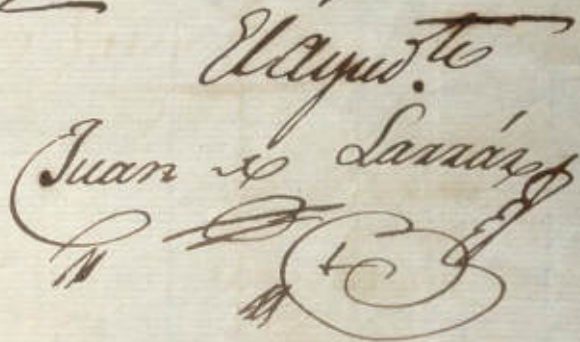 El Ayud.te
Juan de Larráz